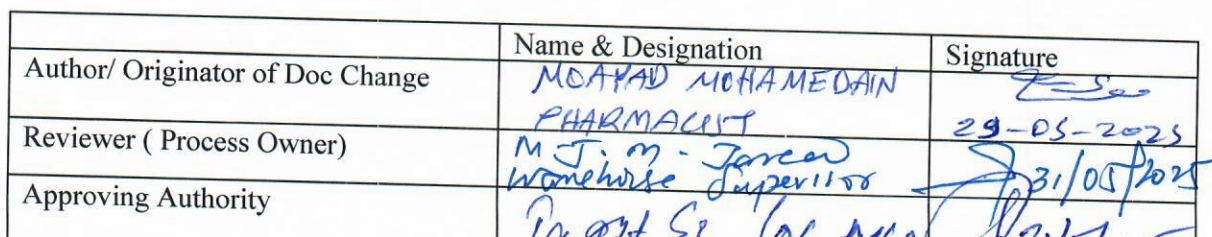 Name & Designation Signature
Author/ Originator of Doc Change MOAYAD MOHAMEDAIN
PHARMACIST 29-05-2025
Reviewer ( Process Owner) M J. M. Jareed
Warehouse Supervisor 31/05/2025
Approving Authority